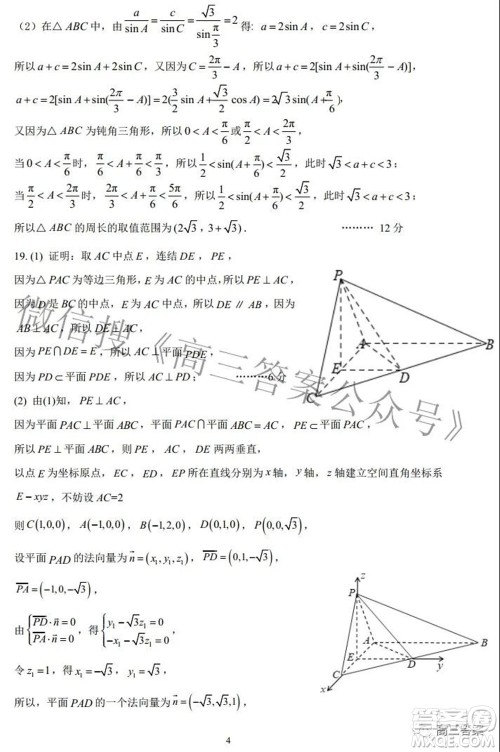 （2）在△ABC中，由 a/sinA = c/sinC = √3/sin(π/3) = 2 得：a=2sinA，c=2sinC，
所以 a+c=2sinA+2sinC，又因为 C=2π/3−A，所以 a+c=2[sinA+sin(2π/3−A)]，
a+c=2[sinA+sin(2π/3−A)]=2(3/2 sinA+√3/2 cosA)=2√3sin(A+π/6)，
又因为△ABC为钝角三角形，所以 0<A<π/6 或 π/2<A<2π/3，
当 0<A<π/6 时，π/6<A+π/6<π/3，所以 1/2<sin(A+π/6)<√3/2，此时 √3<a+c<3；
当 π/2<A<2π/3 时，2π/3<A+π/6<5π/6，所以 1/2<sin(A+π/6)<√3/2，此时 √3<a+c<3；
所以△ABC的周长的取值范围为(2√3，3+√3)． ……… 12分
19. (1) 证明：取AC中点E，连结DE，PE，
因为△PAC为等边三角形，E为AC的中点，所以PE⊥AC，
因为D是BC的中点，E为AC中点，所以DE∥AB，因为
AB⊥AC，所以DE⊥AC，
因为PE∩DE=E，所以AC⊥平面PDE，
因为PD⊂平面PDE，所以AC⊥PD； ………6分
(2) 由(1)知，PE⊥AC，
因为平面PAC⊥平面ABC，平面PAC∩平面ABC=AC，PE⊂平面PAC，
所以PE⊥平面ABC，则PE，AC，DE两两垂直，
以点E为坐标原点，EC，ED，EP所在直线分别为x轴，y轴，z轴建立空间直角坐标系
E−xyz，不妨设AC=2
则C(1,0,0)，A(−1,0,0)，B(−1,2,0)，D(0,1,0)，P(0,0,√3)，
设平面PAD的法向量为n=(x₁,y₁,z₁)，PD=(0,1,−√3)，
PA=(−1,0,−√3)，
由{PD·n=0 PA·n=0，得{y₁−√3z₁=0 −x₁−√3z₁=0，
令z₁=1，得x₁=−√3，y₁=√3，
所以，平面PAD的一个法向量为n=(−√3,√3,1)，
P
A
B
E
D
C
z
P
A
B
E
D
y
C
x
微信搜《高三答案公众号》
高三答案
答案圈
MXQE.COM
4